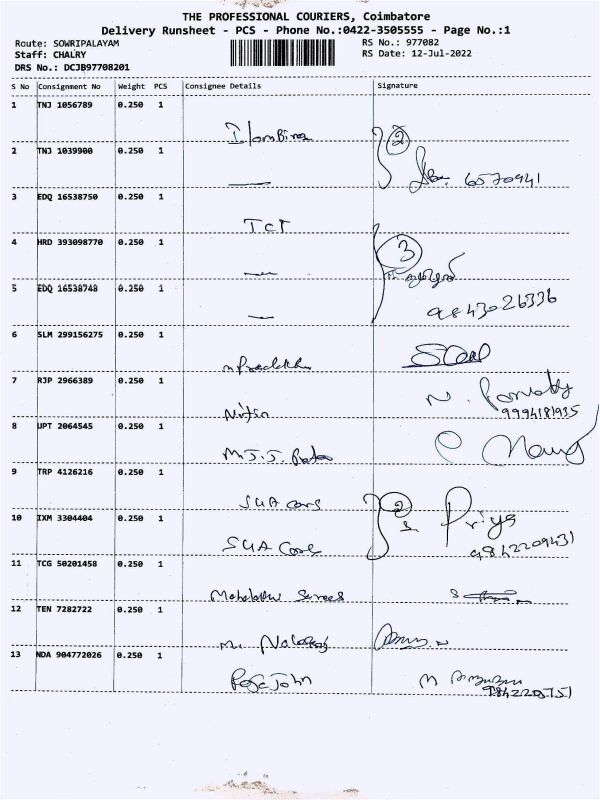 THE PROFESSIONAL COURIERS, Coimbatore
Delivery Runsheet - PCS - Phone No.:0422-3505555 - Page No.:1
Route: SOWRIPALAYAM RS No.: 977082
Staff: CHALRY RS Date: 12-Jul-2022
DRS No.: DCJB97708201
S No Consignment No Weight PCS Consignee Details Signature
1 TNJ 1056789 0.250 1
2
2 TNJ 1039900 0.250 1
6570941
3 EDQ 16538750 0.250 1
TCT
4 HRD 393098770 0.250 1
3
5 EDQ 16538748 0.250 1
9843026336
6 SLM 299156275 0.250 1
7 RJP 2966389 0.250 1
Nitin N.
9994181935
8 UPT 2064545 0.250 1
M.J.J.
9 TRP 4126216 0.250 1
SUA cars 2
10 IXM 3304404 0.250 1 S. Priya
SUA 9842209431
11 TCG 50201458 0.250 1
Suresh
12 TEN 7282722 0.250 1
13 NDA 904772026 0.250 1
John M
9842205751